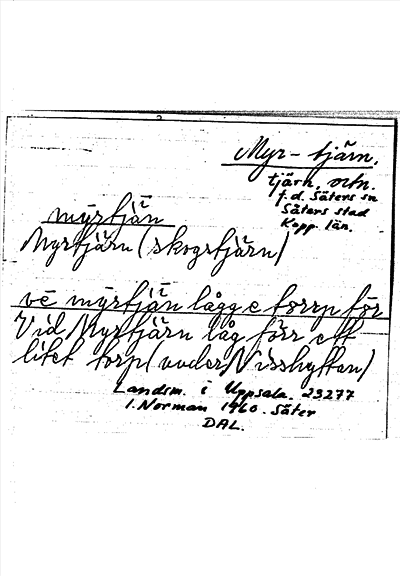 Myr-tjärn,
tjärn, ortn.
f.d. Säters sn
Säters stad
Kopp. län.
mýrtjä̀n
Myrtjärn (skogstjärn)
ve mýrtjä̀n lågg e torrp förr
Vid Myrtjärn låg förr ett
litet torp (under Visshyttan)
Landsm. i Uppsala. 23277
I. Norman 1960. Säter
DAL.